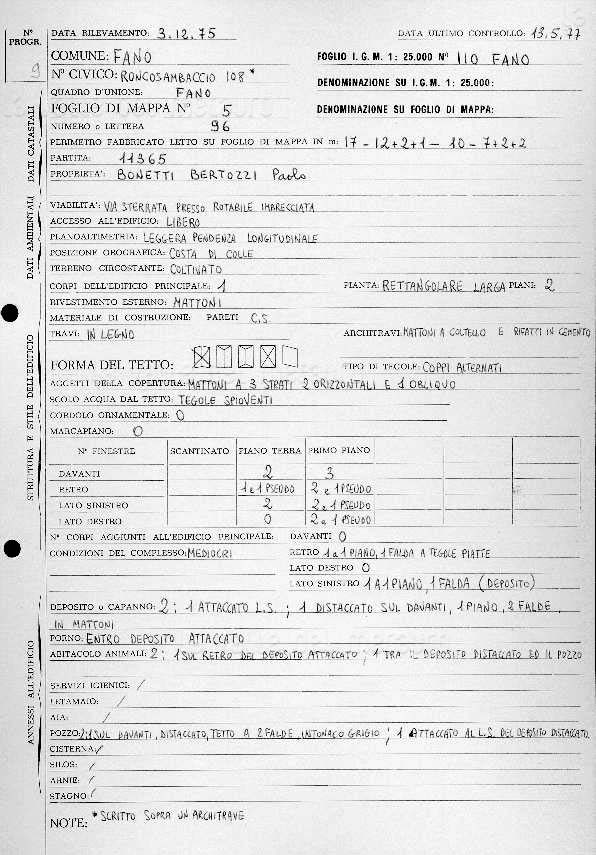 N° PROGR.
9
DATA RILEVAMENTO: 3.12.75 DATA ULTIMO CONTROLLO: 13.5.77
COMUNE: FANO FOGLIO I. G. M. 1: 25.000 N° 110 FANO
N° CIVICO: RONCOSAMBACCIO 108* DENOMINAZIONE SU I.G.M. 1: 25.000:
QUADRO D'UNIONE: FANO
FOGLIO DI MAPPA N° 5 DENOMINAZIONE SU FOGLIO DI MAPPA:
NUMERO o LETTERA 96
PERIMETRO FABBRICATO LETTO SU FOGLIO DI MAPPA IN m: 17-12+2+1-10-7+2+2
PARTITA: 11365
PROPRIETA': BONETTI BERTOZZI Paolo
DATI CATASTALI
VIABILITA': VIA STERRATA PRESSO ROTABILE IMBRECCIATA
ACCESSO ALL'EDIFICIO: LIBERO
PLANOALTIMETRIA: LEGGERA PENDENZA LONGITUDINALE
POSIZIONE OROGRAFICA: COSTA DI COLLE
TERRENO CIRCOSTANTE: COLTIVATO
DATI AMBIENTALI
CORPI DELL'EDIFICIO PRINCIPALE: 1 PIANTA: RETTANGOLARE LARGA PIANI: 2
RIVESTIMENTO ESTERNO: MATTONI
MATERIALE DI COSTRUZIONE: PARETI C.S.
TRAVI: IN LEGNO ARCHITRAVI: MATTONI A COLTELLO E RIFATTI IN CEMENTO
FORMA DEL TETTO: TIPO DI TEGOLE: COPPI ALTERNATI
AGGETTI DELLA COPERTURA: MATTONI A 3 STRATI 2 ORIZZONTALI E 1 OBLIQUO
SCOLO ACQUA DAL TETTO: TEGOLE SPIOVENTI
CORDOLO ORNAMENTALE: 0
MARCAPIANO: 0
STRUTTURA E STILE DELL'EDIFICIO
N° FINESTRE SCANTINATO PIANO TERRA PRIMO PIANO
DAVANTI 2 3
RETRO 1 e 1 PSEUDO 2 e 1 PSEUDO
LATO SINISTRO 2 2 e 1 PSEUDO
LATO DESTRO 0 2 e 1 PSEUDO
N° CORPI AGGIUNTI ALL'EDIFICIO PRINCIPALE: DAVANTI 0
CONDIZIONI DEL COMPLESSO: MEDIOCRI RETRO 1 a 1 PIANO, 1 FALDA A TEGOLE PIATTE
LATO DESTRO 0
LATO SINISTRO 1 A 1 PIANO, 1 FALDA (DEPOSITO)
DEPOSITO o CAPANNO: 2: 1 ATTACCATO L.S.; 1 DISTACCATO SUL DAVANTI, 1 PIANO, 2 FALDE,
IN MATTONI
FORNO: ENTRO DEPOSITO ATTACCATO
ABITACOLO ANIMALI: 2: 1 SUL RETRO DEL DEPOSITO ATTACCATO; 1 TRA IL DEPOSITO DISTACCATO ED IL POZZO
ANNESSI ALL'EDIFICIO
SERVIZI IGIENICI: /
LETAMAIO: /
AIA: /
POZZO: 2: 1 SUL DAVANTI, DISTACCATO, TETTO A 2 FALDE, INTONACO GRIGIO; 1 ATTACCATO AL L.S. DEL DEPOSITO DISTACCATO
CISTERNA: /
SILOS: /
ARNIE: /
STAGNO: /
NOTE: *SCRITTO SOPRA UN ARCHITRAVE